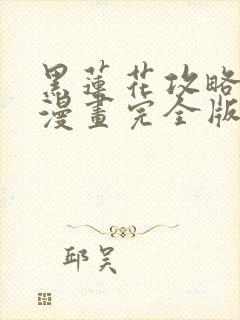 黑蓮花攻略
漫畫完全版
邱吴